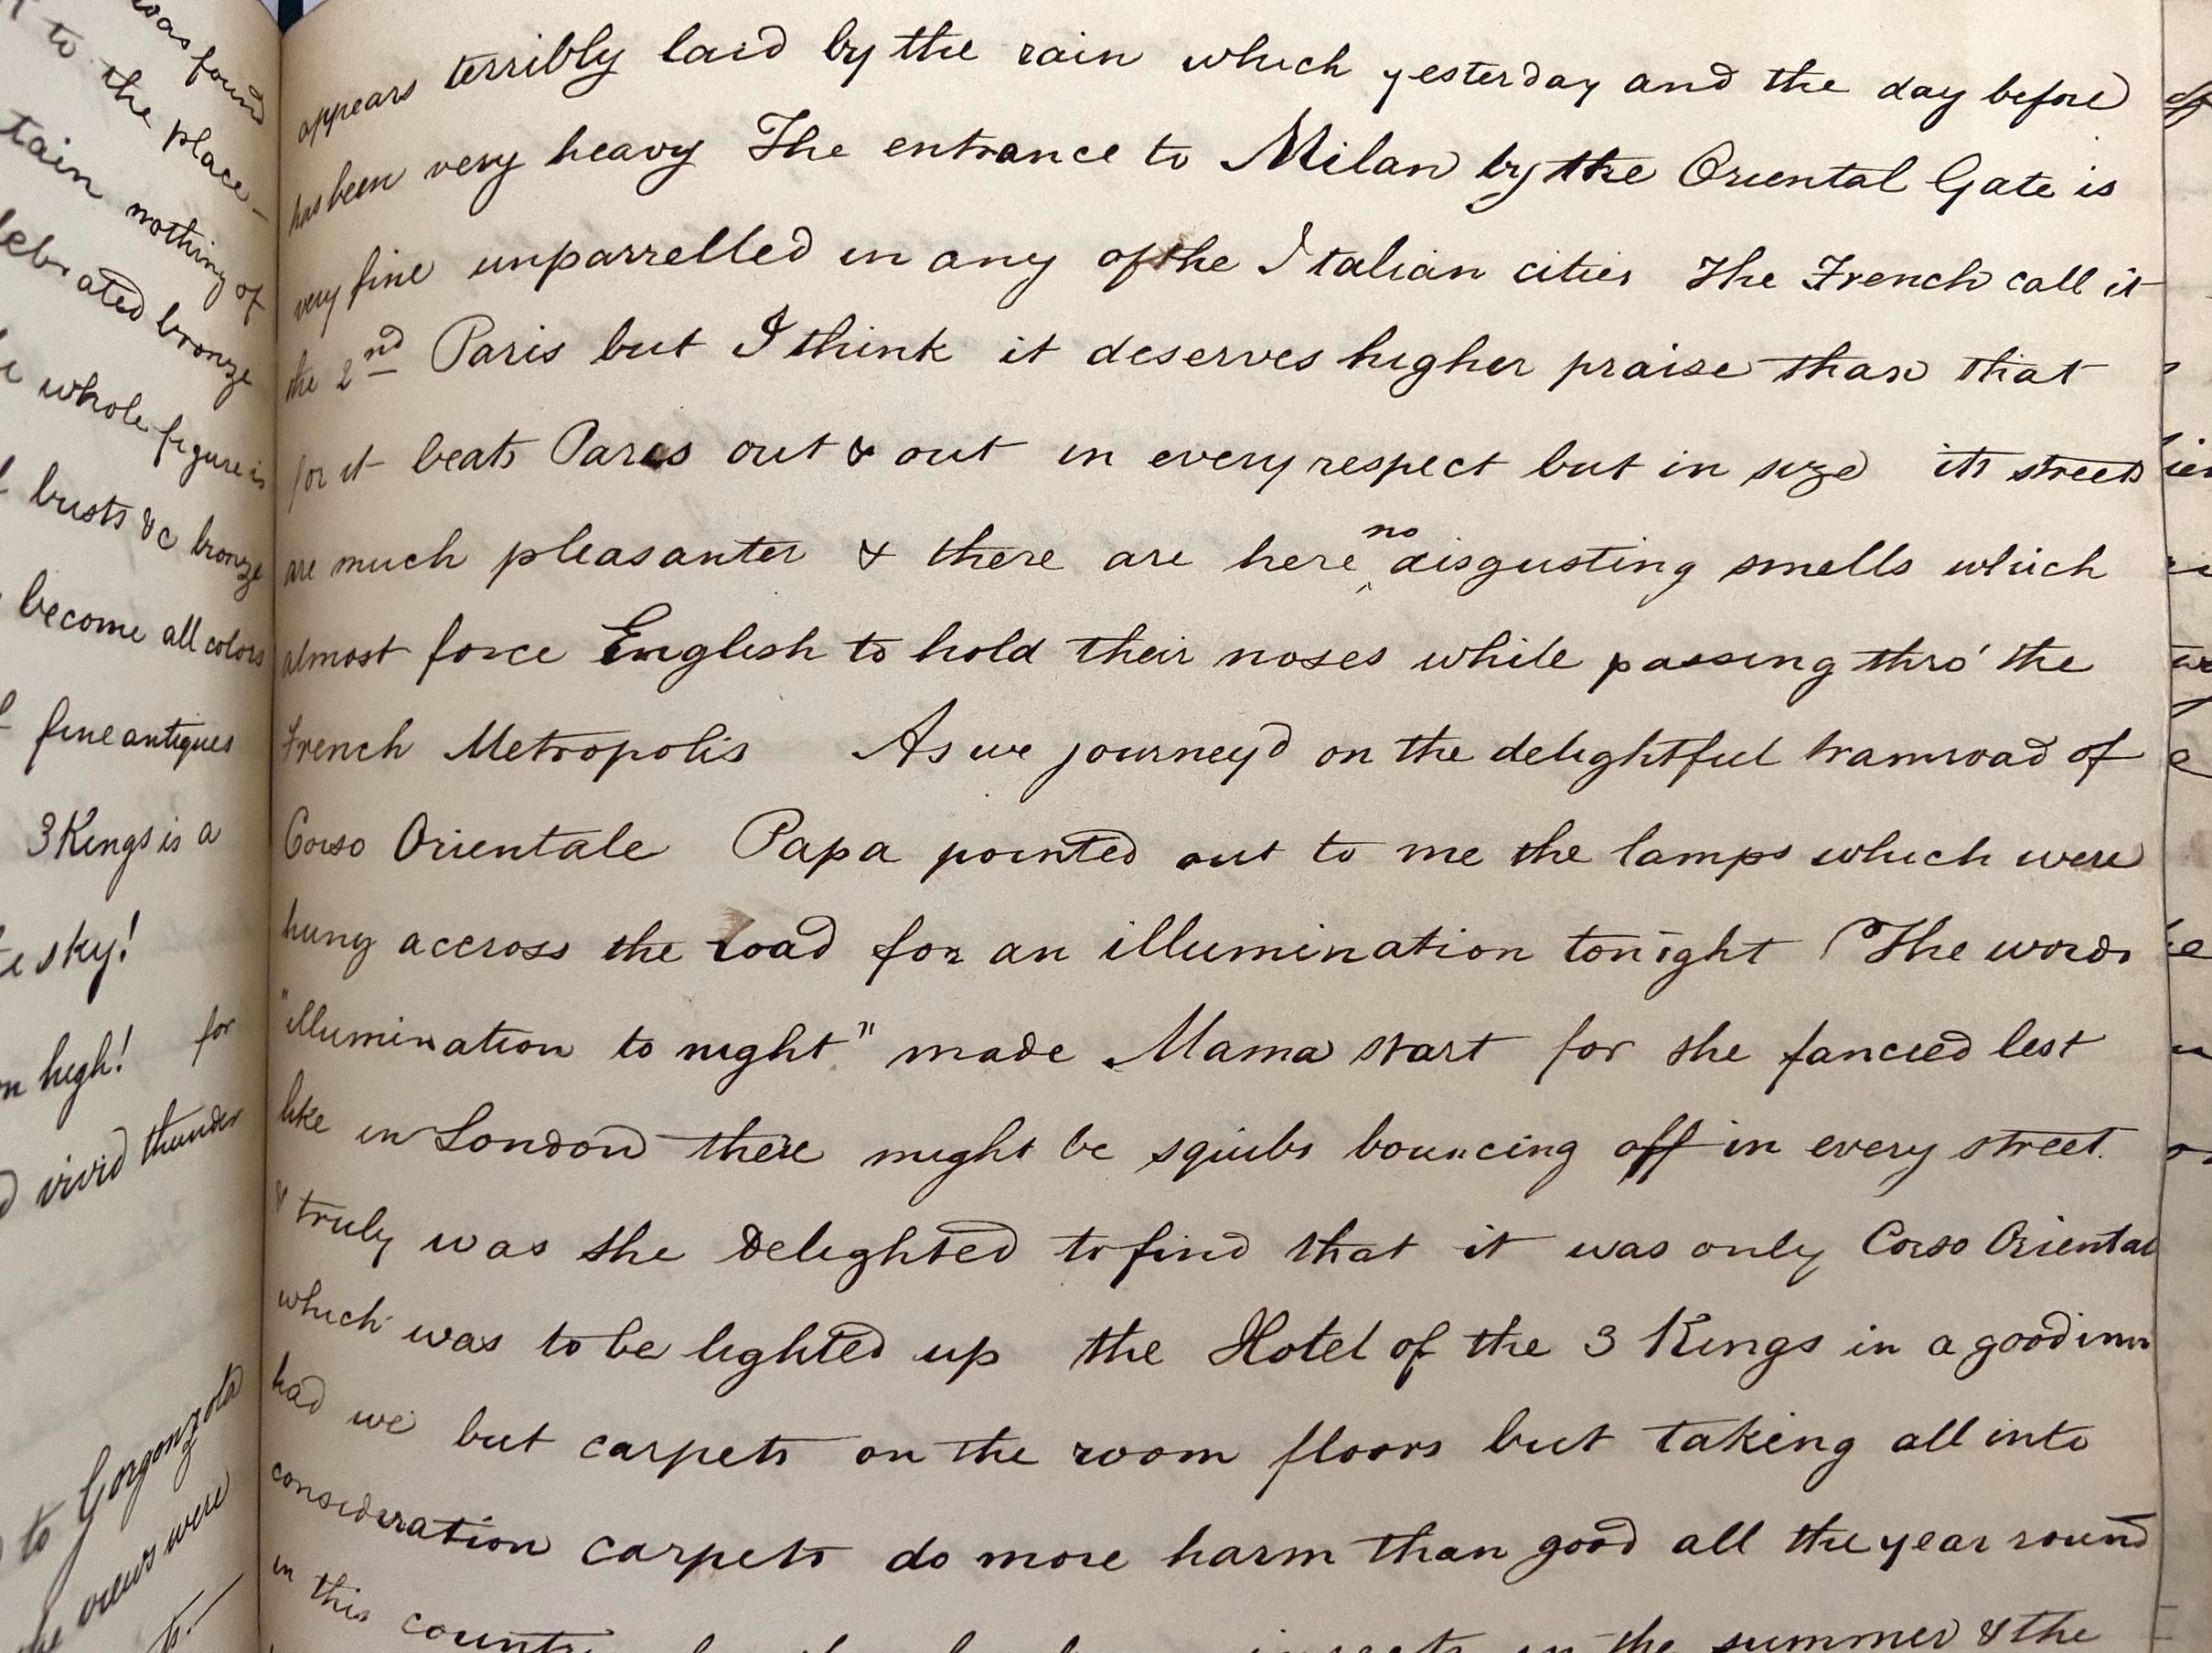 was found
to the place-
tain nothing of
lebrated bronze
whole figure is
busts &c bronze
become all colors
fine antiques
3 Kings is a
sky!
high! for
vivid thunder
to Gorgonzola
views were
appears terribly laid by the rain which yesterday and the day before
has been very heavy The entrance to Milan by the Oriental Gate is
very fine unparrelled in any of the Italian cities The French call it
the 2nd Paris but I think it deserves higher praise than that
for it beats Paris out & out in every respect but in size its streets
are much pleasanter & there are here no disgusting smells which
almost force English to hold their noses while passing thro' the
French Metropolis As we journey'd on the delightful tramroad of
Corso Orientale Papa pointed out to me the lamps which were
hung accross the road for an illumination tonight (The words
"illumination to night" made Mama start for she fancied lest
like in London there might be squibs bouncing off in every street.
& truly was she delighted to find that it was only Corso Oriental
which was to be lighted up the Hotel of the 3 Kings in a good inn
had we but carpets on the room floors but taking all into
consideration carpets do more harm than good all the year round
in this in the summer & the